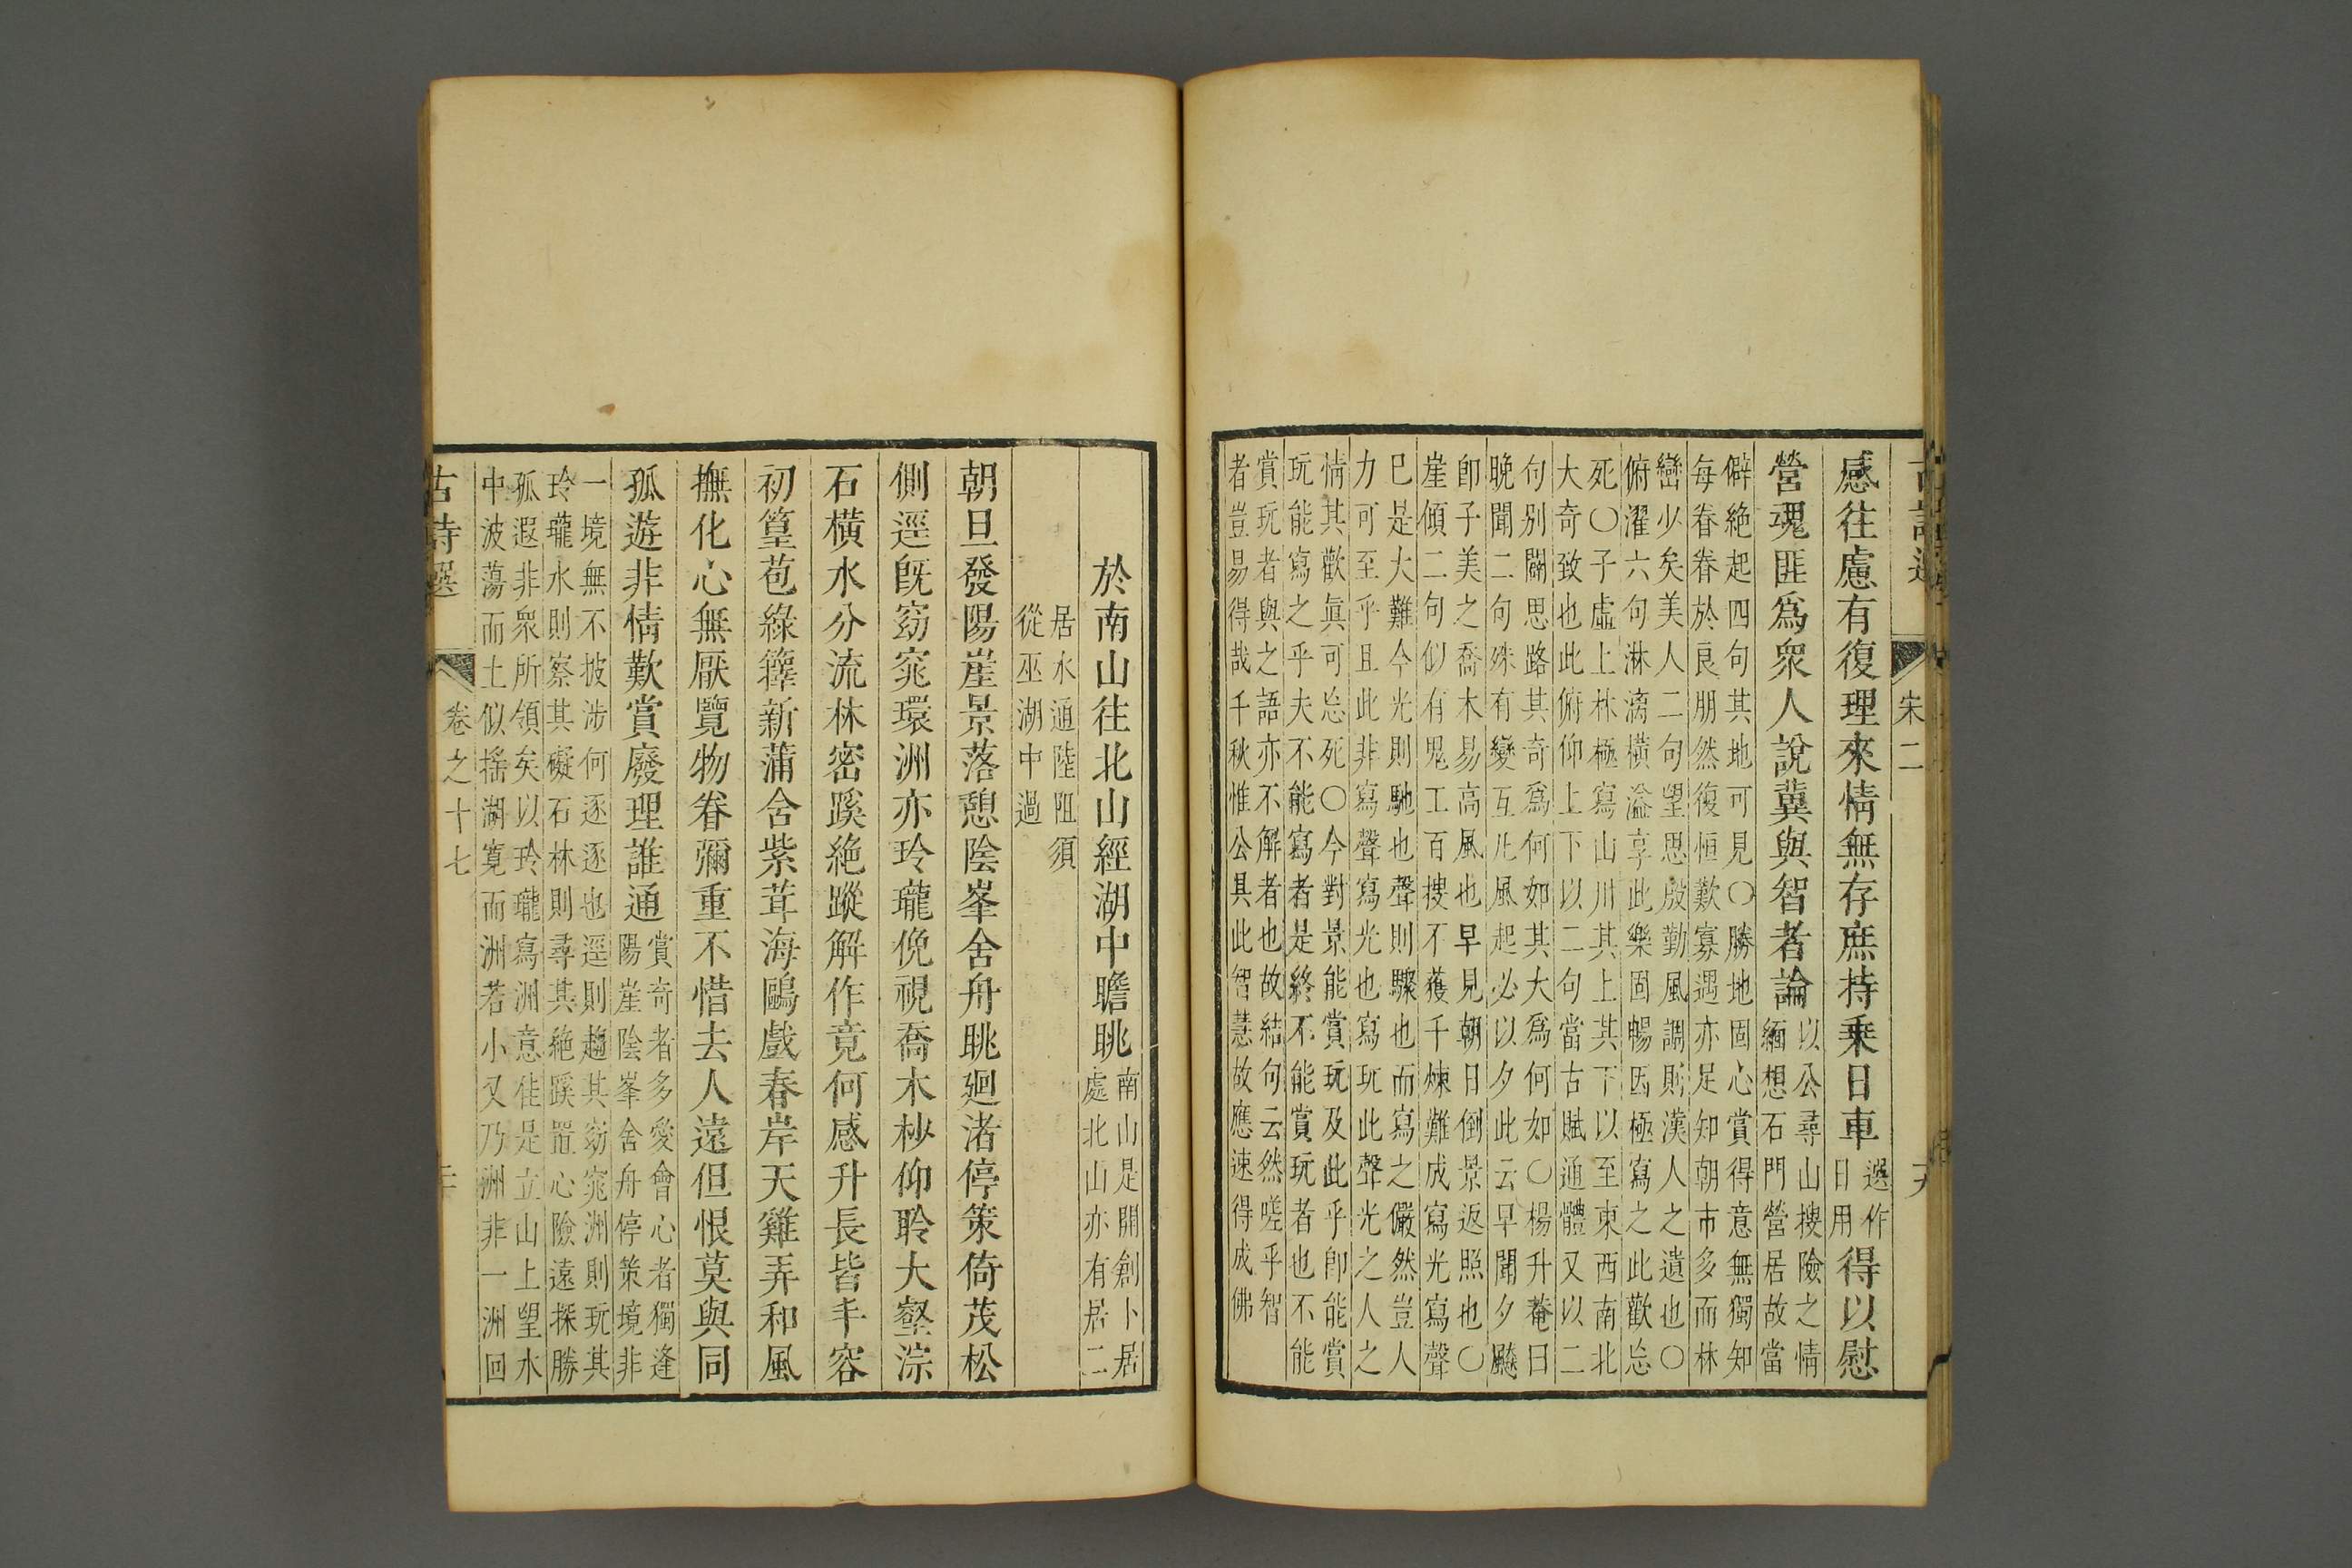 宋二
感往慮有復理來情無存庶持乗日車選作日用得以慰
營魂匪爲衆人說冀與智者論以公尋山搜險之情
緬想石門營居故當
僻絶起四句其地可見〇勝地固心賞得意無獨知
每眷眷於良朋然復恒歎寡遇亦足知朝市多而林
巒少矣美人二句望思殷勤風調則漢人之遺也〇
俯濯六句淋漓橫溢享此樂固暢因極寫之此歡忘
死〇子虛上林極寫山川其上其下以至東西南北
大奇致也此俯仰上下以二句當古賦通體又以二
句别闢思路其奇爲何如其大爲何如〇楊升菴曰
晚聞二句殊有變互凡風起必以夕此云早聞夕飈
卽子美之喬木易高風也早見朝日倒景返照也〇
崖傾二句似有鬼工百搜不獲千煉難成寫光寫聲
巳是大難今光則馳也聲則驟也而寫之儼然豈人
力可至乎且此非寫聲寫光也寫玩此聲光之人之
情其歡眞可忘死〇今對景能賞玩及此乎卽能賞
玩能寫之乎夫不能寫者是終不能賞玩者也不能
賞玩者與之語亦不解者也故結句云然嗟乎智
者豈易得哉千秋惟公具此智慧故應速得成佛
於南山往北山經湖中瞻眺南山是開創卜居
處北山亦有居二
居水通陸阻須
從巫湖中過
朝旦發陽崖景落憩陰峯舍舟眺廻渚停策倚茂松
側逕旣窈窕環洲亦玲瓏俛視喬木杪仰聆大壑淙
石橫水分流林密蹊絶蹤解作竟何感升長皆丰容
初篁苞綠籜新蒲含紫茸海鷗戲春岸天雞弄和風
撫化心無厭覽物眷彌重不惜去人遠但恨莫與同
孤遊非情歎賞廢理誰通賞奇者多愛會心者獨逢
陽崖陰峯舍舟停策境非
一境無不披涉何逐逐也逕則趨其窈窕洲則玩其
玲瓏水則察其礙石林則尋其絶蹊置心險遠探勝
孤遐非衆所領矣以玲瓏寫洲意佳是立山上望水
中波蕩而土似搖湖寬而洲若小又乃洲非一洲回
古詩選 卷之十七